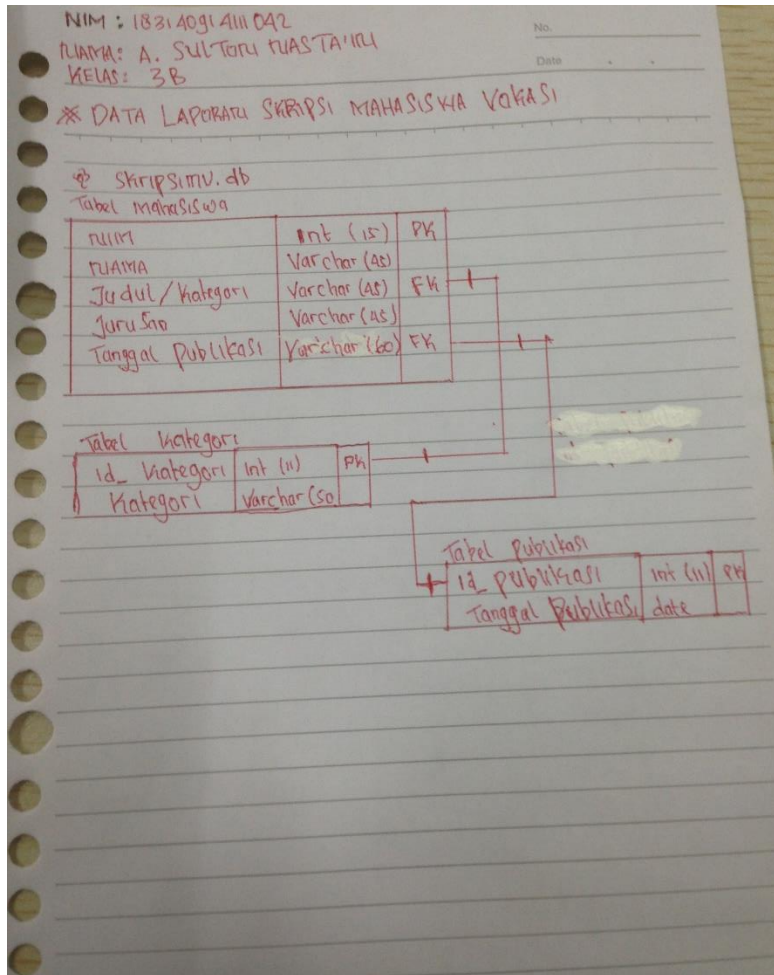 NIM : 183140914111042
No.
NAMA: A. SULTONU NASTA'INU
Date
KELAS: 3B
* DATA LAPORAN SKRIPSI MAHASISWA VOKASI
skripsimv.db
Tabel Mahasiswa
NIM Int (15) PK
NAMA Varchar (45)
Judul/Kategori Varchar (45) FK
Jurusan Varchar (45)
Tanggal Publikasi Varchar (60) FK
Tabel Kategori
id_Kategori Int (11) PK
Kategori Varchar (50
Tabel Publikasi
id_publikasi int (11) PK
Tanggal Publikasi date